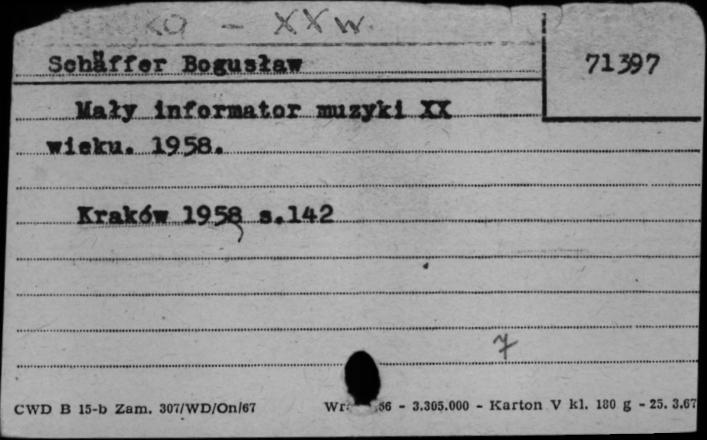 - XX w.
Schäffer Bogusław
71397
Mały informator muzyki XX
wieku. 1958.
Kraków 1958 s.142
7
CWD B 15-b Zam. 307/WD/On/67 66 - 3.305.000 - Karton V kl. 180 g - 25. 3.67